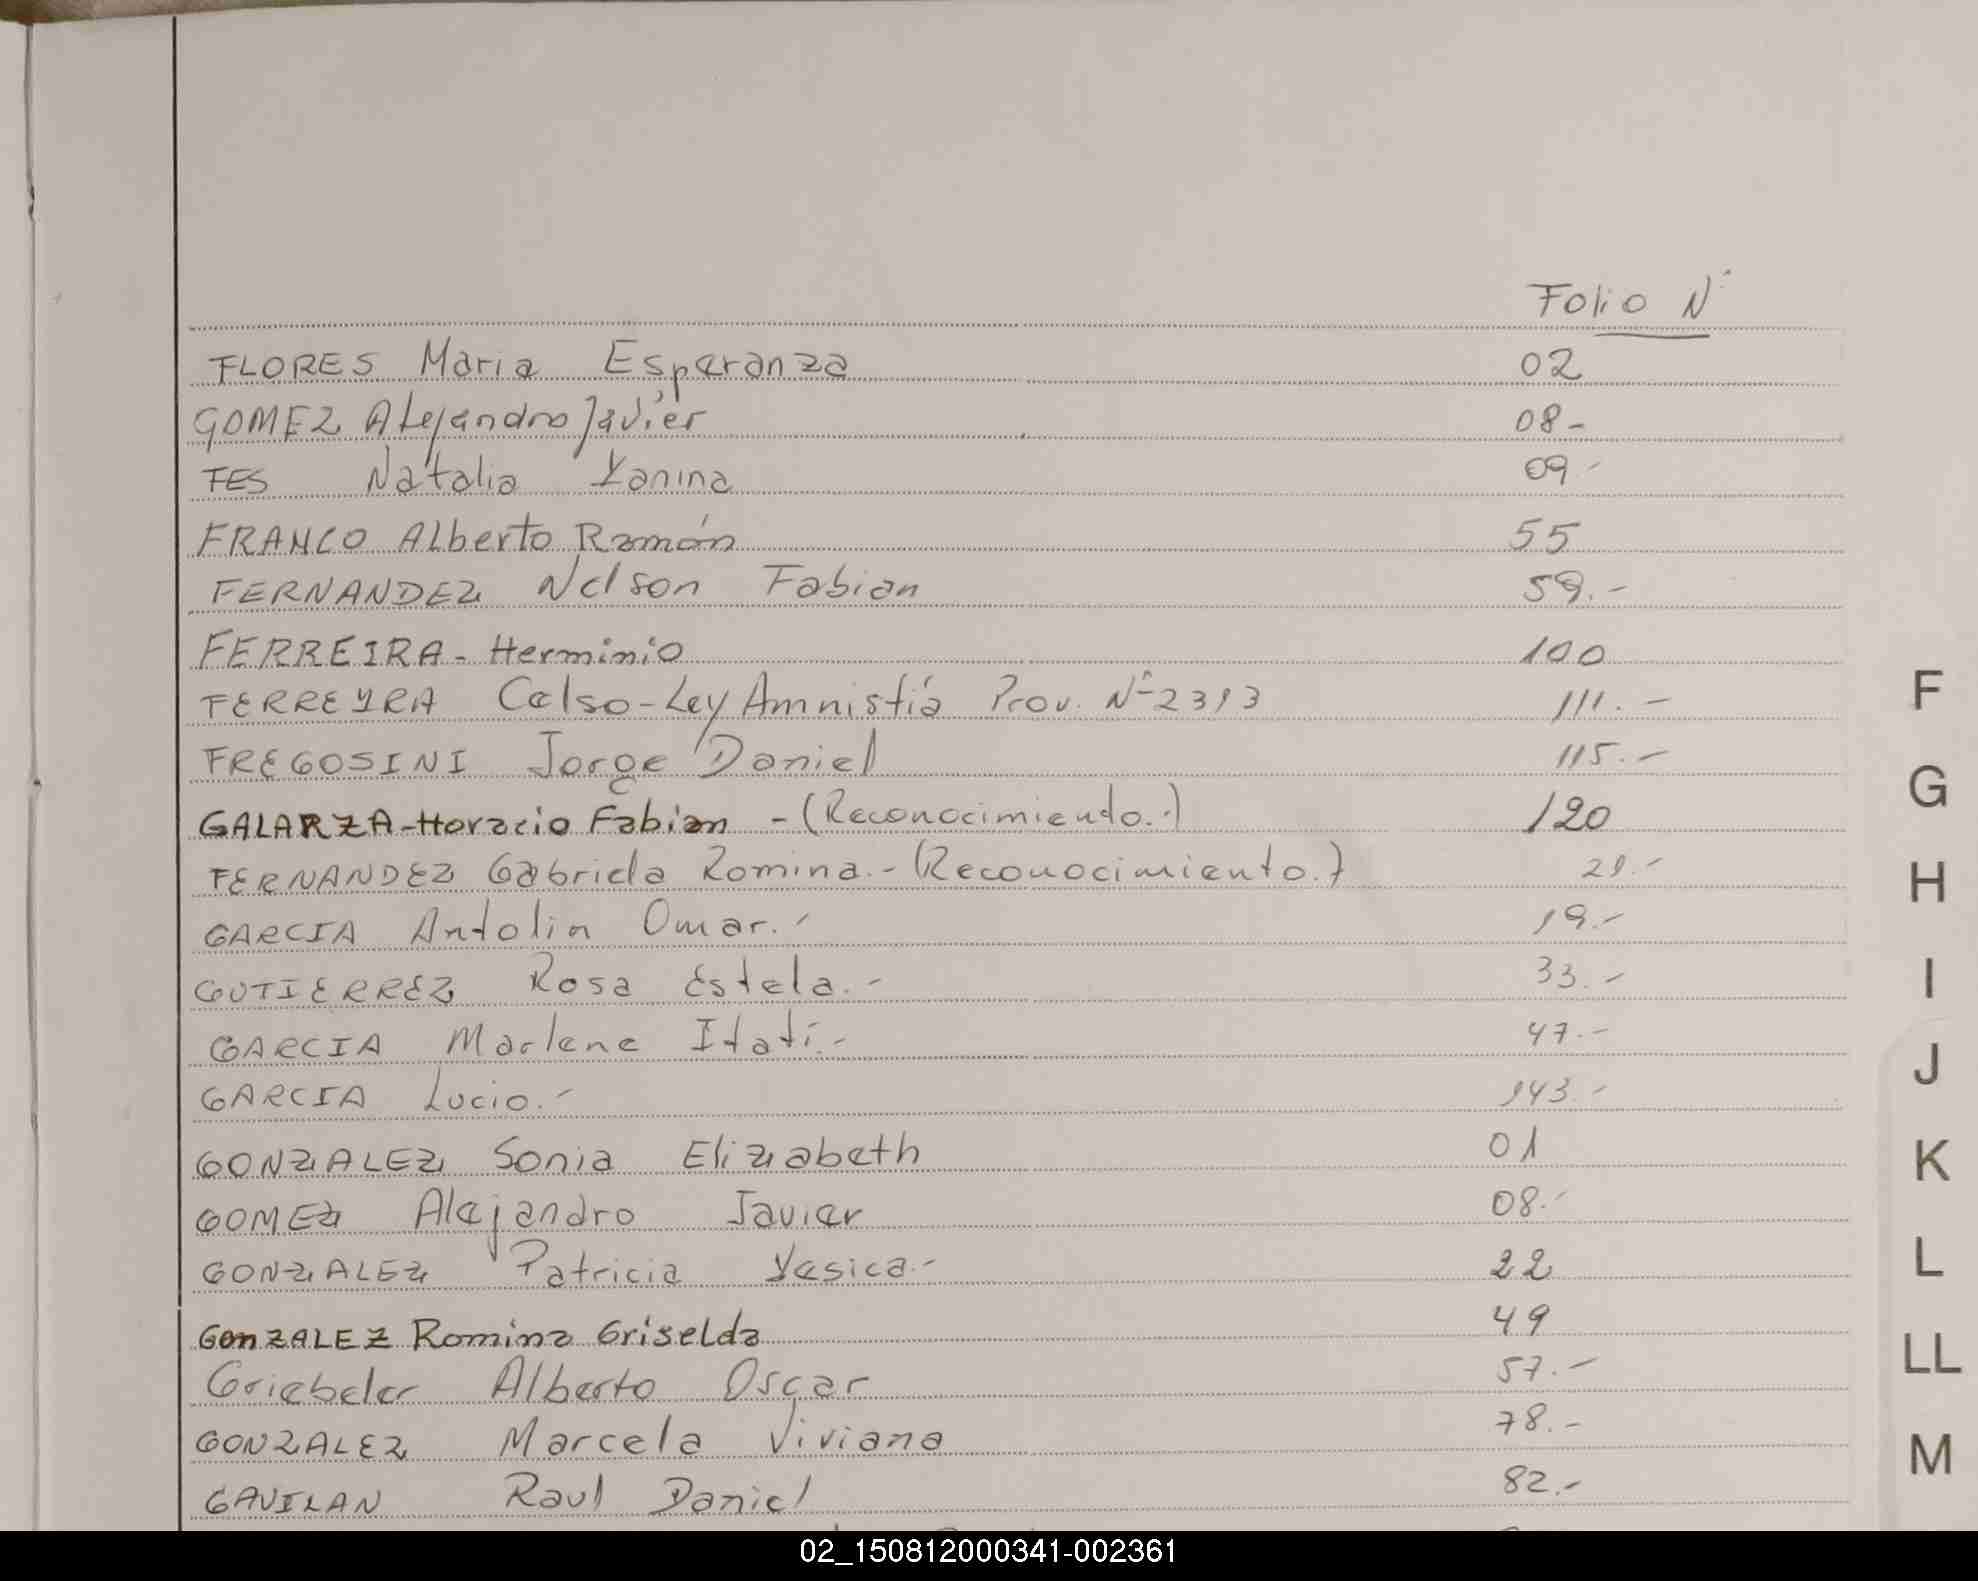 Folio N°
FLORES Maria Esperanza 02
GOMEZ Alejandro Javier 08-
FES Natalia Yanina 09-
FRANCO Alberto Ramón 55
FERNANDEZ Nelson Fabian 59.-
FERREIRA - Herminio 100
FERREYRA Celso - Ley Amnistía Prov. N° 2313 111.-
FREGOSINI Jorge Daniel 115.-
GALARZA - Horacio Fabian - (Reconocimiendo.) 120
FERNANDEZ Gabriela Romina.- (Reconocimiento.) 29.-
GARCIA Antolin Omar.- 19.-
GUTIERREZ Rosa Estela.- 33.-
GARCIA Marlene Itatí.- 47.-
GARCIA Lucio.- 143.-
GONZALEZ Sonia Elizabeth 01
GOMEZ Alejandro Javier 08.-
GONZALEZ Patricia Yesica.- 22
GonZALEZ Romina Griselda 49
Griebeler Alberto Oscar 57.-
GONZALEZ Marcela Viviana 78.-
GAVILAN Raul Daniel 82.-
F
G
H
I
J
K
L
LL
M
02_150812000341-002361